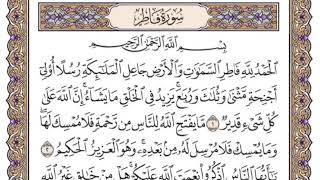 سُورَةُ فَاطِرٍ
بِسْمِ اللَّهِ الرَّحْمَٰنِ الرَّحِيمِ
الْحَمْدُ لِلَّهِ فَاطِرِ السَّمَٰوَٰتِ وَالْأَرْضِ جَاعِلِ الْمَلَٰٓئِكَةِ رُسُلًا أُو۟لِىٓ
أَجْنِحَةٍ مَّثْنَىٰ وَثُلَٰثَ وَرُبَٰعَ ۚ يَزِيدُ فِى الْخَلْقِ مَا يَشَآءُ ۚ إِنَّ اللَّهَ عَلَىٰ
كُلِّ شَىْءٍ قَدِيرٌ ١ مَّا يَفْتَحِ اللَّهُ لِلنَّاسِ مِن رَّحْمَةٍ فَلَا مُمْسِكَ لَهَا ۖ
وَمَا يُمْسِكْ فَلَا مُرْسِلَ لَهُۥ مِنۢ بَعْدِهِۦ ۚ وَهُوَ الْعَزِيزُ الْحَكِيمُ ٢
يَٰٓأَيُّهَا النَّاسُ اذْكُرُوا۟ نِعْمَتَ اللَّهِ عَلَيْكُمْ ۚ هَلْ مِنْ خَٰلِقٍ غَيْرُ اللَّهِ